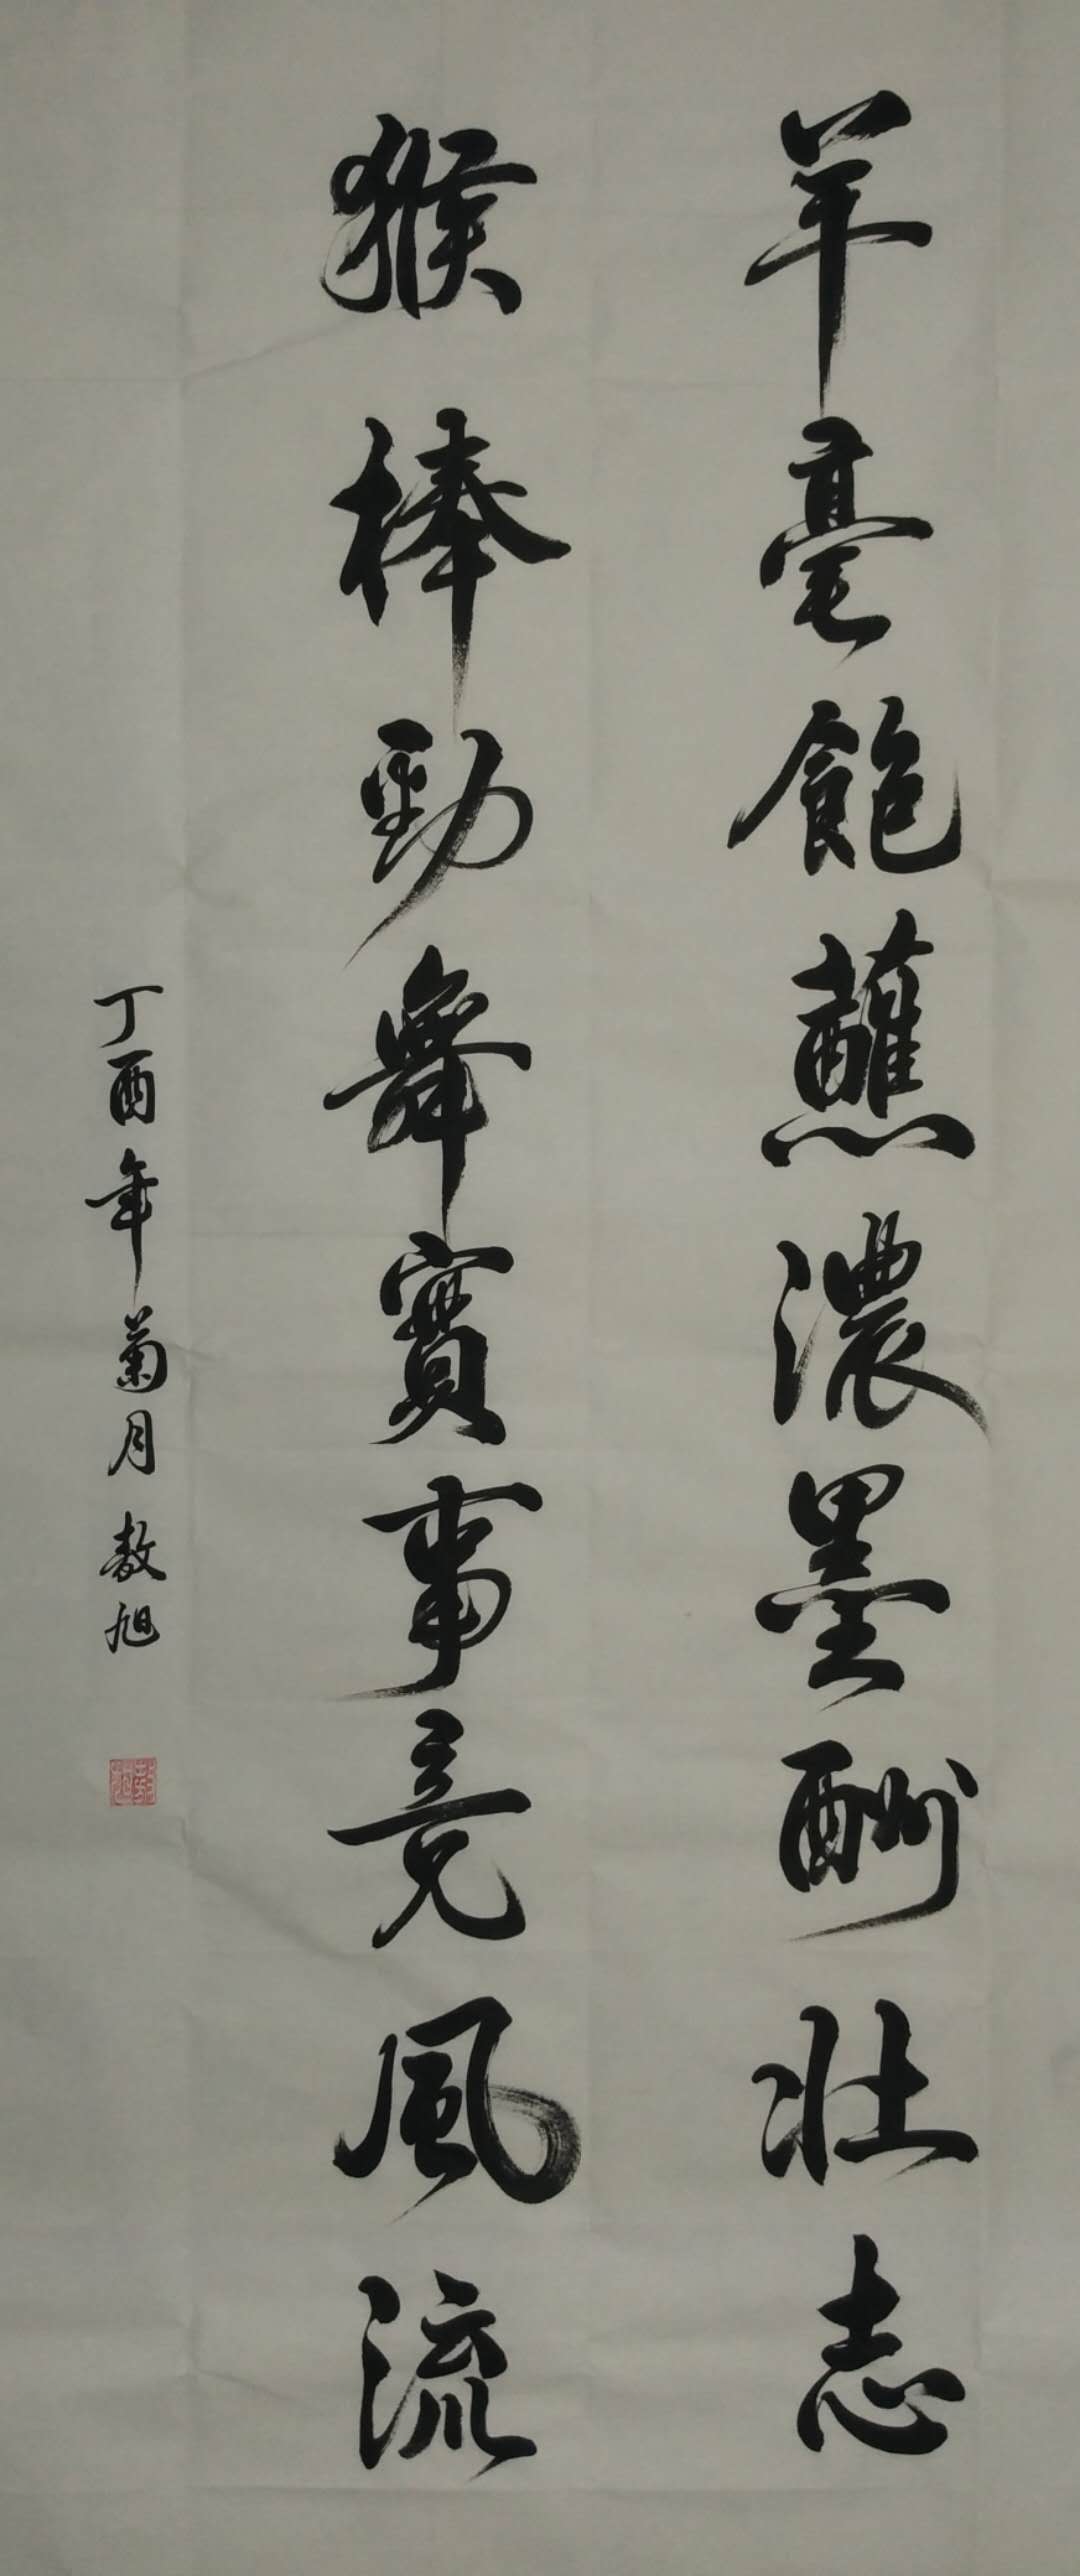 羊毫飽蘸濃墨酬壯志
猴棒勁舞實事竞風流
丁酉年菊月敖旭